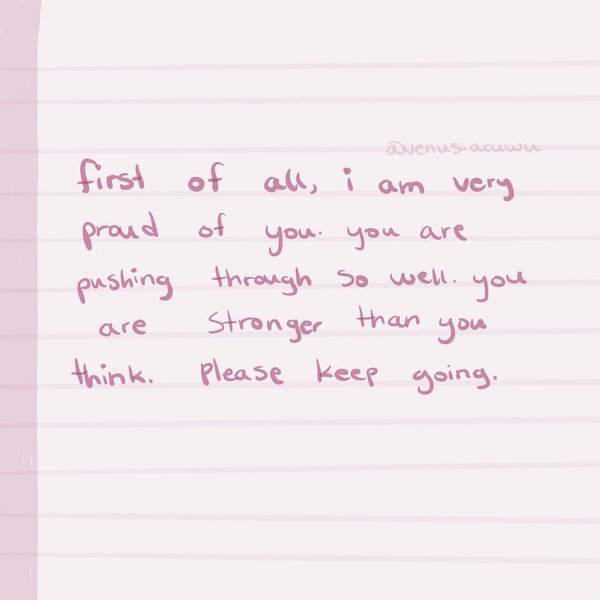 @venus.acuwu
first of all, i am very
proud of you. you are
pushing through so well. you
are stronger than you
think. Please keep going.